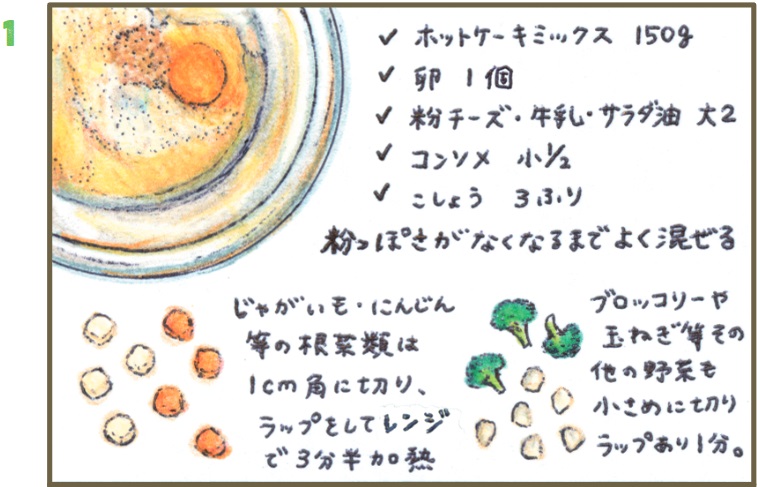 1
✓ ホットケーキミックス 150g
✓ 卵 1個
✓ 粉チーズ・牛乳・サラダ油 大2
✓ コンソメ 小1/2
✓ こしょう 3ふり
粉っぽさがなくなるまでよく混ぜる
じゃがいも・にんじん
等の根菜類は
1cm角に切り、
ラップをしてレンジ
で3分半加熱
ブロッコリーや
玉ねぎ等その
他の野菜も
小さめに切り
ラップあり1分。